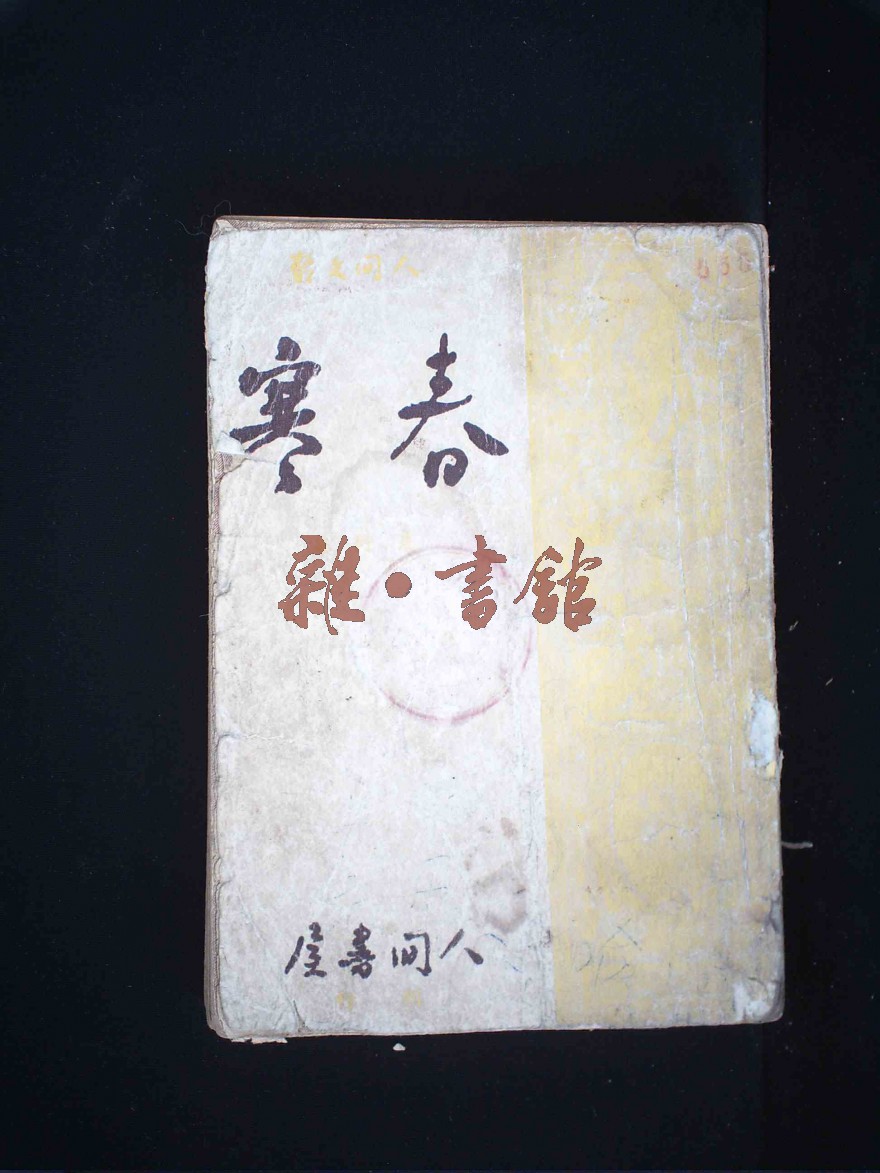 人间文叢
春寒
雜·書館
人间書屋